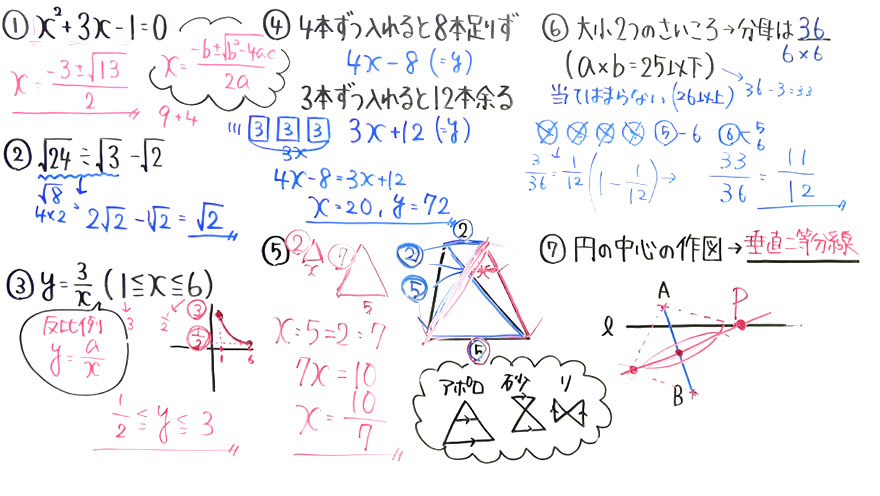 ① x²+3x-1=0
x = (-3±√13)/2
x = (-b±√(b²-4ac))/2a
9+4
② √24÷√3-√2
√8
4×2
2√2-√2=√2
③ y=3/x (1≦x≦6)
3
1/2
反比例
y=a/x
3
1/2
1
6
1/2≦y≦3
④ 4本ずつ入れると8本足りず
4x-8 (=y)
3本ずつ入れると12本余る
3 3 3
3x
3x+12 (=y)
4x-8=3x+12
x=20, y=72
⑤ ② ⑦
x
5
②
②
⑤
x
⑤
x:5=2:7
7x=10
x=10/7
アポロ 砂 リ
⑥ 大小2つのさいころ→分母は36
6×6
(a×b=25以下)
当てはまらない(26以上)
36-3=33
① ② ③ ④ ⑤-6 ⑥-5
6
3/36=1/12 (1-1/12)→ 33/36=11/12
⑦ 円の中心の作図→垂直二等分線
A
P
ℓ
B